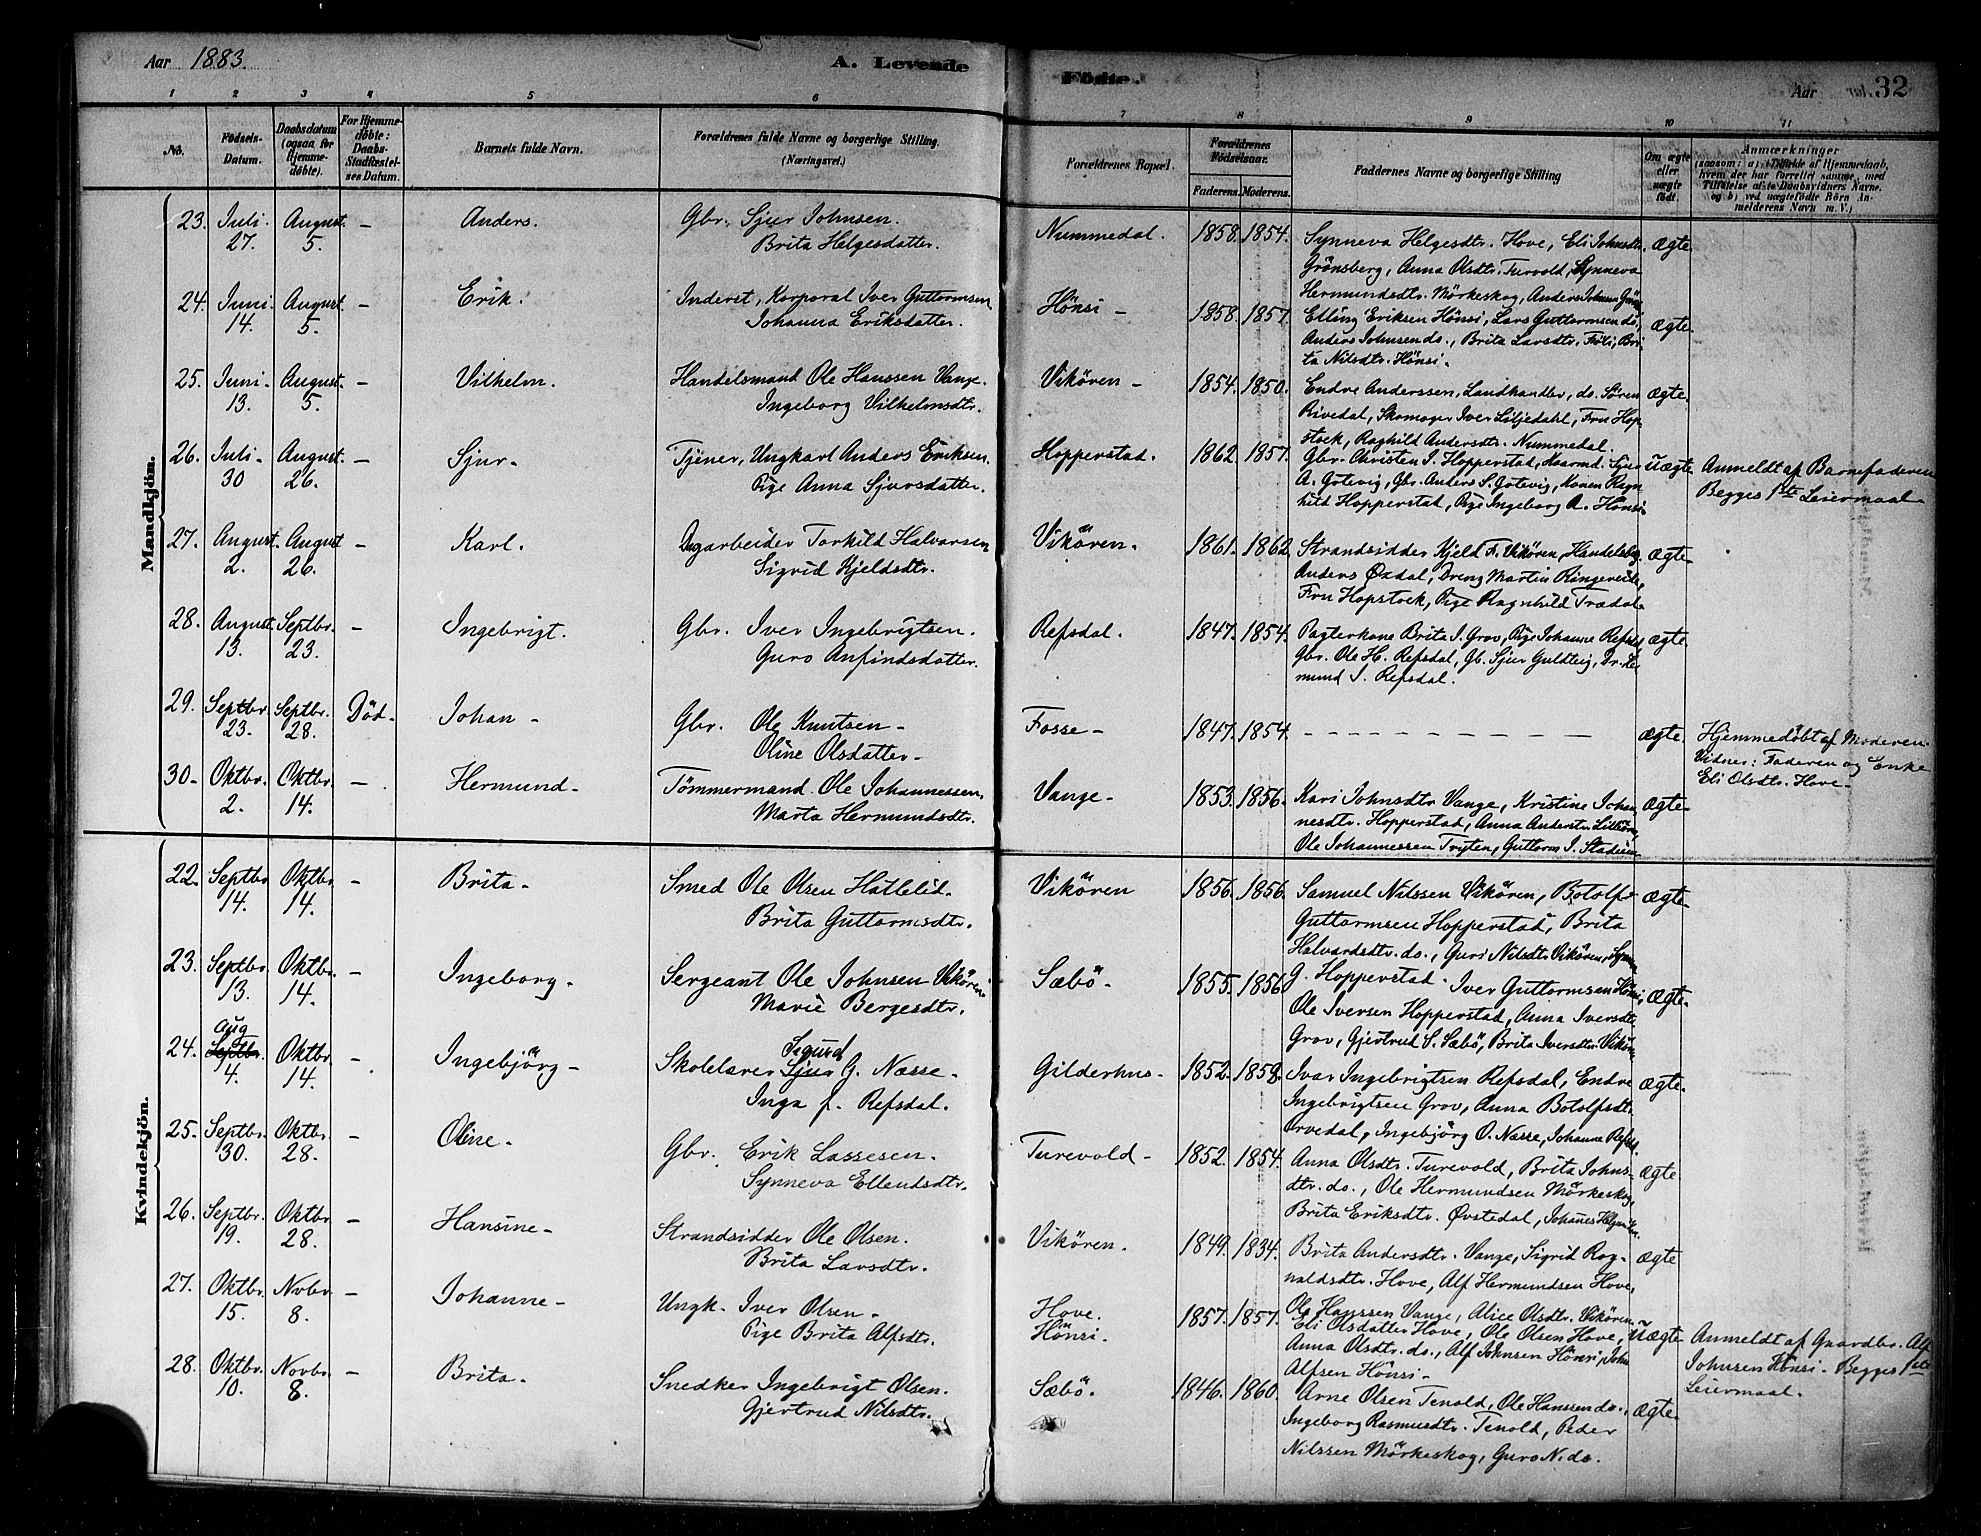 Aar 1883. A. Levende Födte. Aar 32
1 2 3 4 5 6 7 8 9 10 11
No.
Födsels-Datum.
Daabsdatum (ogsaa for Hjemme-döbte).
For Hjemme-döbte: Daabs-Stadfæstel-ses Datum.
Barnets fulde Navn.
Forældrenes fulde Navne og borgerlige Stilling.
(Næringsvei.)
Forældrenes Bopæl.
Forældrenes Födselsaar.
Faderens. Moderens.
Faddernes Navne og borgerlige Stilling
Om ægte eller uægte födt.
Anmærkninger
(saasom: a) i Tilfælde af Hjemmedaab,
hvem der har forrettet samme, med
Tilföielse af to Daabsvidners Navne.
og b) ved uægtefödte Börn An-
melderens Navn m. V.)
Mandkjön.
23. Juli 27. August 5. – Anders. Gbr. Sjur Johnsen. Nummedal. 1858. 1854. Synneva Helgesdtr. Hove, Eli Johnsdtr. ægte
Brita Helgesdatter. Grönsberg, Anna Olsdtr. Turvold, Synneva
Hermundsdtr. Mörkeskog, Anders Johnsen
24. Juni 14. August 5. – Erik. Inderst, Korporal Iver Guttormsen Hönsi – 1858. 1857. Elling Eriksen Hönsi, Lars Guttormsen do, ægte.
Johanna Eriksdatter. Anders Johnsen do., Brita Larsdtr. Föli, Bri-
ta Nilsdtr. Hönsi.
25. Juni 13. August 5. – Vilhelm. Handelsmand Ole Hanssen Vange. Vikören – 1854. 1850. Endre Anderssen, Landhandler, do. Sören ægte.
Ingeborg Vilhelmsdtr. Rivedal, Skomager Iver Liljedahl, Fru Hop-
stock, Raghild Andersdtr. Nummedal.
26. Juli 30 August 26. – Sjur – Tjener, Ungkarl Anders Eriksen. Hopperstad. 1862. 1857. Gbr. Christen I. Hopperstad, Kaarmd. Sjur uægte Anmeldt af Barnefaderen
Pige Anna Sjursdatter. A. Gotevig, Gbr. Anders S. Gotevig, Konen Ragn- Begges 1ste Leiermaal
hild Hopperstad, Pige Ingeborg A. Hönsi
27. August 2. August 26. – Karl. Dagarbeider Torkild Halvarsen Vikören. 1861. 1862. Strandsidder Kjeld F. Vikören, Handelsbg. ægte
Sigrid Kjeldsdtr. Anders Öxdal, Dreng Martin Ringereide,
Fru Hopstock, Pige Ragnhild Trædal
28. August 13. Septbr. 23. – Ingebrigt. Gbr. Iver Ingebrigtsen. Refsdal. 1847. 1854. Pagterkone Brita I. Grov, Pige Johanne Refsdal ægte.
Guro Anfindsdatter. Gbr. Ole H. Refsdal, Gb. Sjur Guldteig, Dr.
mund I. Refsdal.
29. Septbr. 23. Septbr. 28. Död – Johan – Gbr. Ole Knutsen – Fosse – 1847. 1854. – – – – – – – – – – ægte. Hjemmedöbt af Moderen.
Oline Olsdatter – Vidner: Faderen og Enke
Eli Olsdtr. Hove –
30 – Oktbr. 2. Oktbr. 14. – Hermund – Tömmermand Ole Johannessen Vange – 1853. 1856. Kari Johnsdtr. Vange, Kristine Johan- ægte
Marta Hermundsdtr. nesdtr. Hopperstad, Anna Anderstr.
Ole Johannessen Tryten, Guttorm I.
Kvindekjön.
22. Septbr. 14. Oktbr. 14. – Brita – Smed Ole Olsen Hatlelid. Vikören 1856. 1856. Samuel Nilssen Vikören, Botolf ægte
Brita Guttormsdtr. Guttormsen Hopperstad, Brita
Halvardsdtr. do., Guri Nilsdtr. Vikören,
23. Septbr. 13. Oktbr. 14. – Ingeborg – Sergeant Ole Johnsen Vikören Sæbö – 1855. 1856 G. Hopperstad. Iver Guttormsen Hönsi, ægte.
Marie Bergesdtr. Ole Iversen Hopperstad, Anna Iversdtr
Grov, Gjertrud S. Sæbö, Brita Iversdtr. Vikören
24. Aug Septbr. 4. Oktbr. 14. – Ingebjörg – Skolelærer Sigurd Sjur G. Næsse – Gilderhus – 1852. 1858. Ivar Ingebrigtsen Refsdal, Endre ægte.
Inga f. Refsdal. Ingebrigtsen Grov, Anna Botolfsdtr.
Orvedal, Ingebjörg O. Næsse, Johanne Refsd.
25. Septbr. 30. Oktbr. 28. – Oline – Gbr. Erik Lassesen. Turevold – 1852. 1854. Anna Olsdtr. Turevold, Brita Johns- ægte
Synneva Ellendsdtr. dtr. do., Ole Hermundsen Mörkeskog,
Brita Eriksdtr. Övstedal, Johanes
26. Septbr. 19. Oktbr. 28. – Hansine – Strandsidder Ole Olsen. Vikören. 1849. 1834. Brita Andersdtr. Vange, Sigrid Rog- ægte
Brita Larsdtr. naldsdtr. Hove, Alf Hermundsen Hove,
Ole Hanssen Vange, Alice Olsdtr. Vikören
27. Oktbr. 15. Novbr. 8. – Johanne – Ungk. Iver Olsen – Hove. 1857. 1857. Eli Olsdatter Hove, Ole Olsen Hove, uægte Anmeldt af Gaardbr. Alf
Pige Brita Alfsdtr. Hönsi. Anna Olsdtr. do., Alf Johnsen Hönsi, John Johnsen Hönsi – Begges 1ste
Alfsen Hönsi – Leiermaal.
28. Oktbr. 10. Novbr. 8. – Brita. Snedker Ingebrigt Olsen. Sæbö. 1846. 1860. Arne Olsen Tenold, Ole Hanssen do., ægte
Gjertrud Nilsdtr. Ingeborg Rasmusdtr. Tenold, Peder
Nilssen Mörkeskog, Guro N. do.